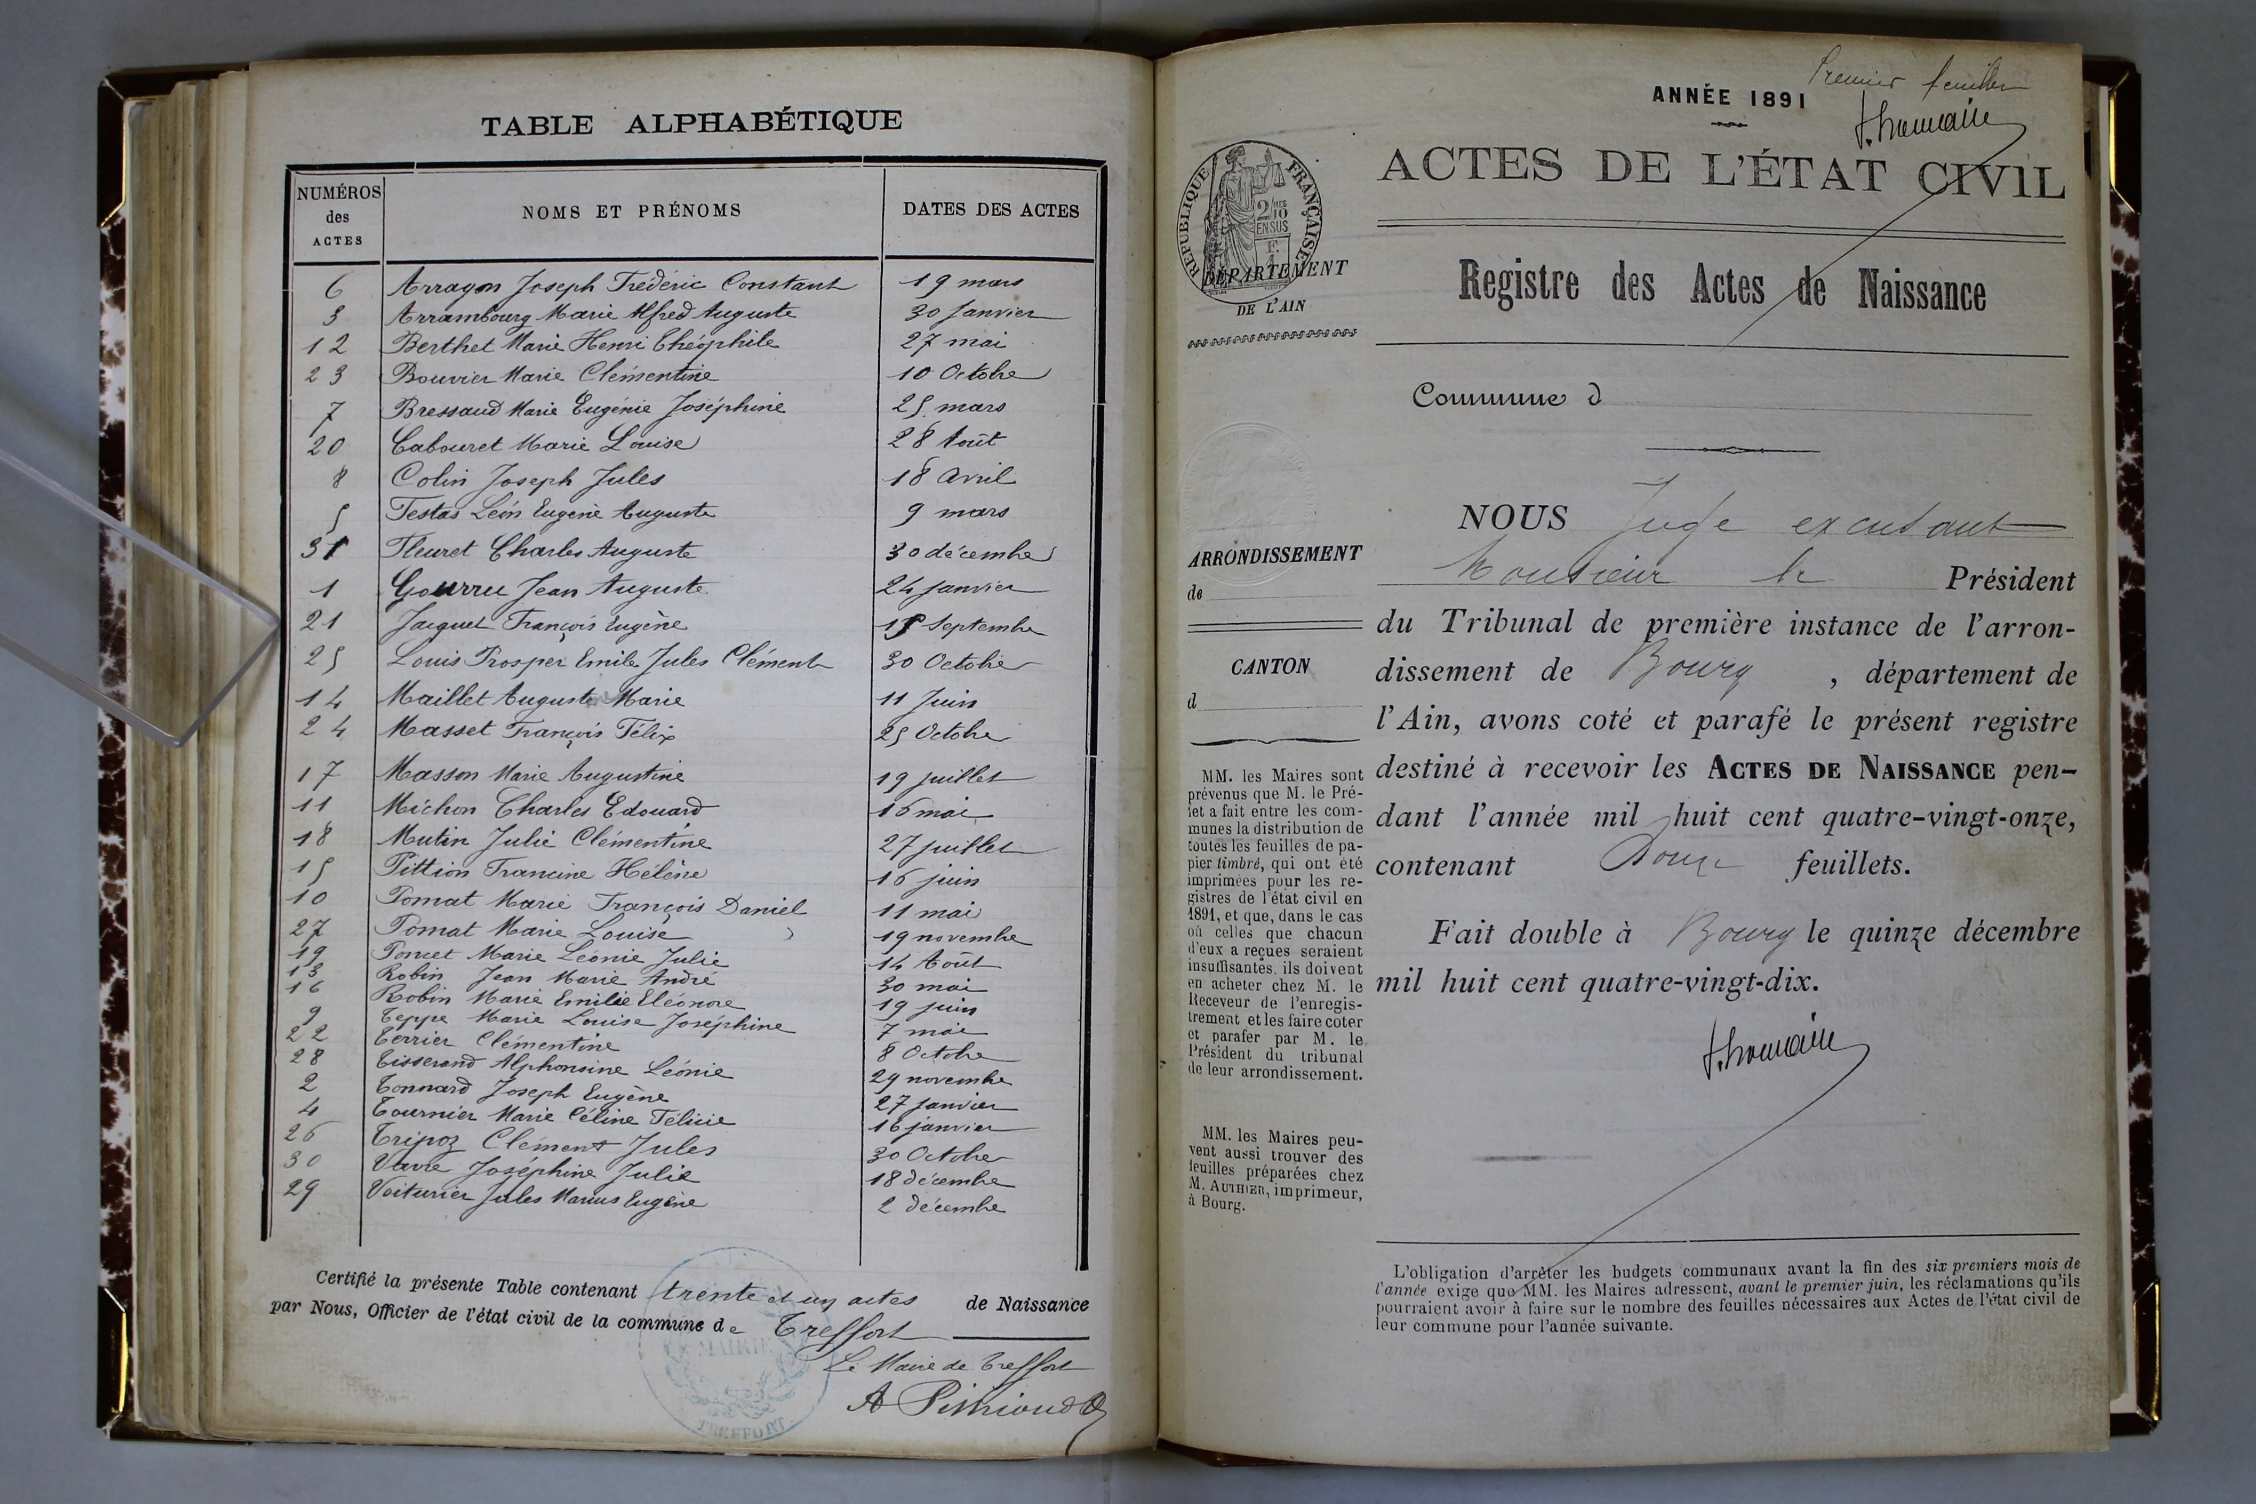 TABLE ALPHABÉTIQUE
NUMÉROS des ACTES
NOMS ET PRÉNOMS
DATES DES ACTES
6 Arragon Joseph Frédéric Constant 19 mars
3 Arrambourg Marie Alfred Auguste 30 Janvier
12 Berthet Marie Henri Théophile 27 mai
23 Bouvier Marie Clémentine 10 Octobre
7 Bressaud Marie Eugénie Joséphine 25 mars
20 Cabouret Marie Louise 28 Août
8 Colin Joseph Jules 18 Avril
5 Festas Léon Eugène Auguste 9 mars
31 Fleuret Charles Auguste 30 décembre
1 Gourru Jean Auguste 24 janvier
21 Jacquet François Eugène Septembre
25 Louis Prosper Emile Jules Clément 30 Octobre
14 Maillet Auguste Marie 11 Juin
24 Masset François Félix 25 Octobre
17 Masson Marie Augustine 19 juillet
11 Michon Charles Edouard 16 mai
18 Mutin Julie Clémentine 27 juillet
15 Pittion Francine Hélène 16 juin
10 Pomat Marie François Daniel 11 mai
27 Pomat Marie Louise 19 novembre
19 Poncet Marie Léonie Julie 14 Août
13 Robin Jean Marie André 30 mai
16 Robin Marie Emilie Eléonore 19 juin
9 Teppe Marie Louise Joséphine 7 mai
22 Terrier Clémentine 8 Octobre
28 Tisserand Alphonsine Léonie 29 novembre
2 Tonnard Joseph Eugène 27 janvier
4 Tournier Marie Céline Félicie 16 janvier
26 Tripoz Clément Jules 30 Octobre
30 Vavre Joséphine Julie 18 décembre
29 Voiturier Jules Marius Eugène 2 décembre
Certifié la présente Table contenant trente et un actes de Naissance
par Nous, Officier de l'état civil de la commune de Treffort
MAIRIE
TREFFORT
Le Maire de Treffort
Premier feuillet
ANNÉE 1891
ACTES DE L'ÉTAT CIVIL
RÉPUBLIQUE FRANÇAISE
2/10
EN SUS
DÉPARTEMENT
DE L'AIN
Registre des Actes de Naissance
Commune d
ARRONDISSEMENT
de
CANTON
d
MM. les Maires sont
prévenus que M. le Pré-
fet a fait entre les com-
munes la distribution de
toutes les feuilles de pa-
pier timbré, qui ont été
imprimées pour les re-
gistres de l'état civil en
1891, et que, dans le cas
où celles que chacun
d'eux a reçues seraient
insuffisantes, ils doivent
en acheter chez M. le
Receveur de l'enregis-
trement et les faire coter
et parafer par M. le
Président du tribunal
de leur arrondissement.
MM. les Maires peu-
vent aussi trouver des
feuilles préparées chez
M. AUTHIER, imprimeur,
à Bourg.
NOUS Juge excusant
Monsieur le Président
du Tribunal de première instance de l'arron-
dissement de Bourg , département de
l'Ain, avons coté et parafé le présent registre
destiné à recevoir les ACTES DE NAISSANCE pen-
dant l'année mil huit cent quatre-vingt-onze,
contenant Douze feuillets.
Fait double à Bourg le quinze décembre
mil huit cent quatre-vingt-dix.
L'obligation d'arrêter les budgets communaux avant la fin des six premiers mois de
l'année exige que MM. les Maires adressent, avant le premier juin, les réclamations qu'ils
pourraient avoir à faire sur le nombre des feuilles nécessaires aux Actes de l'état civil de
leur commune pour l'année suivante.